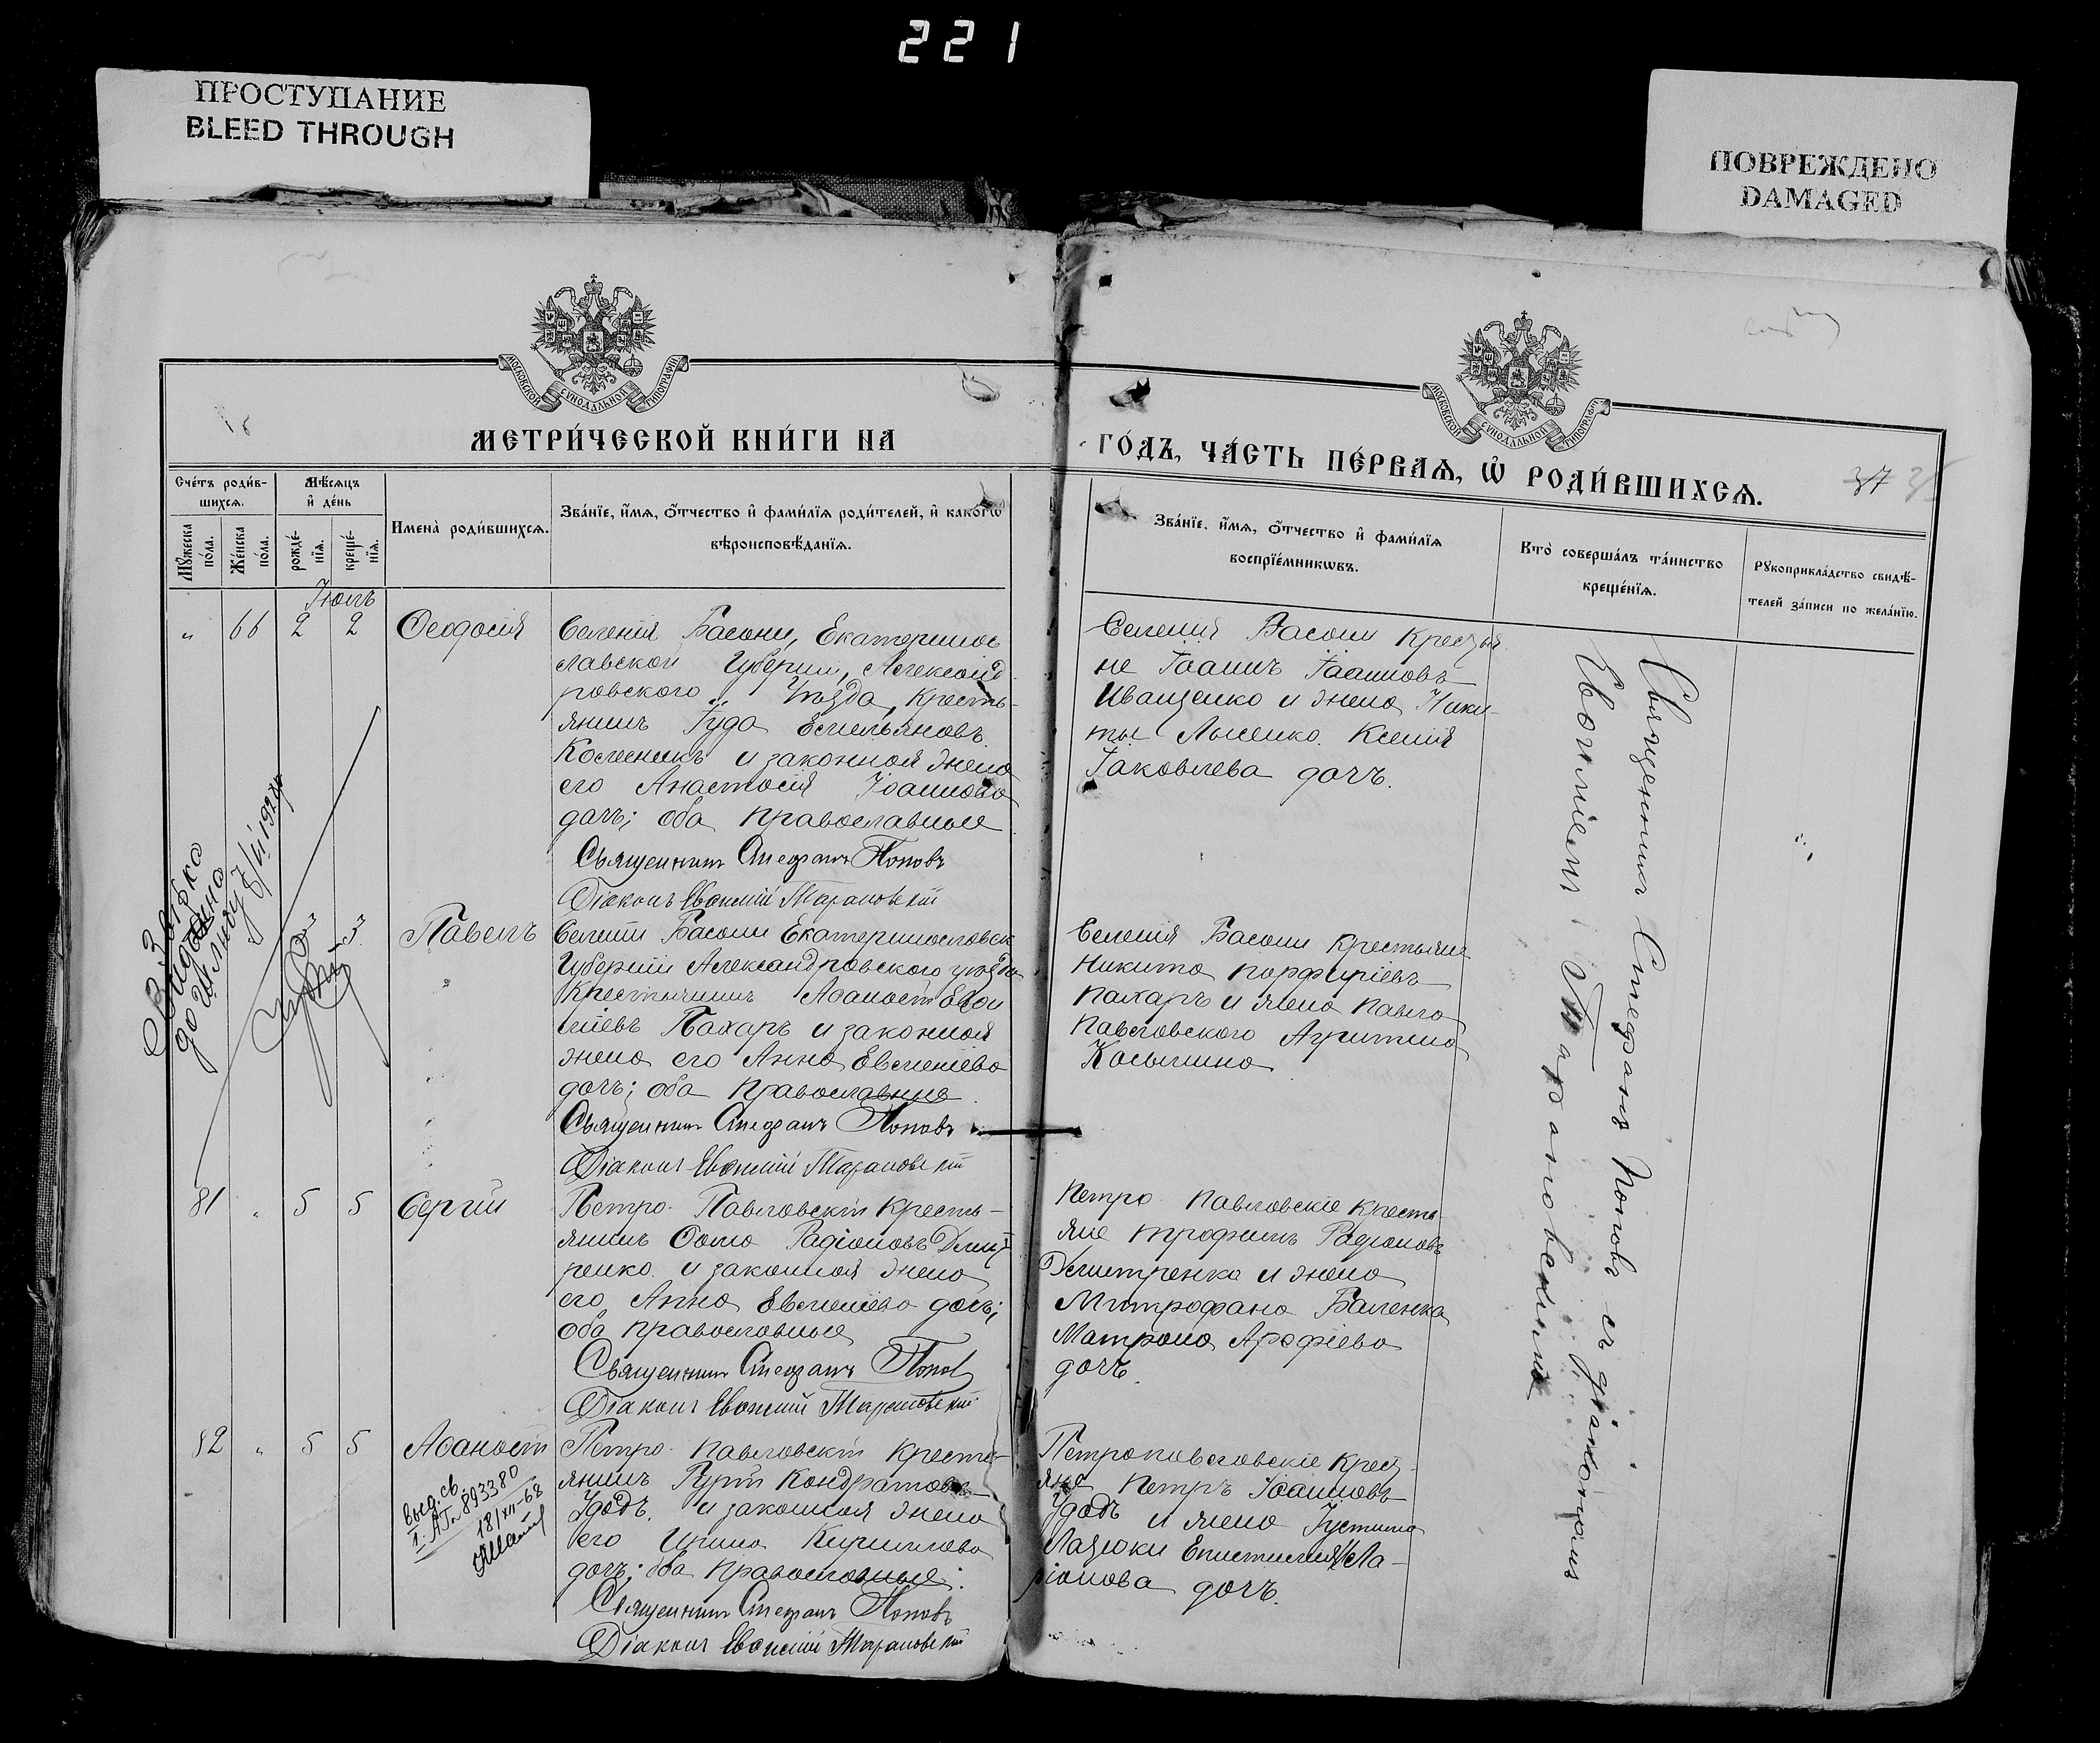 221
ПРОСТУПАНИЕ
BLEED THROUGH
ПОВРЕЖДЕНО
DAMAGED
МОСКОВСКОЙ СѴНОДАЛЬНОЙ ТИПОГРАФІИ
МОСКОВСКОЙ СѴНОДАЛЬНОЙ ТИПОГРАФІИ
МЕТРИ́ЧЕСКОЙ КНИ́ГИ НА
ГО́ДЪ, ЧА́СТЬ ПЕ́РВАѦ, Ѡ҆ РОДИ́ВШИХСѦ.
37
Сче́тъ роди́в-
шихсѧ.
Мѣ́сѧцъ
и҆ де́нь
Мꙋ́жеска
по́ла.
Же́нска
по́ла.
рожде́-
нїѧ.
креще́-
нїѧ.
Имена̀ роди́вшихсѧ.
Зва́нїе, и҆́мѧ, ѻ҆́тчество и҆ фами́лїѧ роди́телей, и҆ како́гѡ
вѣроисповѣ́данїѧ.
Зва́нїе, и҆́мѧ, ѻ҆́тчество и҆ фами́лїѧ
воспрїе́мникѡвъ.
Кто̀ соверша́лъ та́инство
креще́нїѧ.
Рꙋкоприкла́дство свидѣ́-
телей за́писи по жела́нїю.
Іюль
" 66 2 2 Ѳеодосія
Селенія Басани, Екатеринос
лавской Губерніи, Александ
ровского Уѣзда, Кресть-
янинъ Іуда Емельяновъ
Колесникъ и законная жена
его Анастасія Іоаннова
дочь; оба православные
Священникъ Стефанъ Поповъ
Діаконъ Евѳимій Тарановскій
Селенія Басани Кресья
не Іоаннъ Іоанновъ
Иващенко и жена Ники-
ты Лысенко Ксенія
Іаковлева дочь.
Священникъ Стефанъ Поповъ съ діакономъ
Евѳиміемъ Тарановскимъ
3 3 Павелъ
Селенія Басани Екатеринославск
Губерніи Александровского уѣзда
Крестьянинъ Аѳанасій Евѳи
міевъ Пахаръ и законная
жена его Анна Евсеніева
дочь; оба православные
Священникъ Стефанъ Поповъ
Діаконъ Евѳимій Тарановскій
Селенія Басани Крестьяне
Никита Порфиріевъ
Пахаръ и жена Павла
Павловского
81 " 5 5 Сергій
Петро-Павловскій Кресть-
янинъ Ѳома Радіоновъ Дмит
ренко и законная жена
его Анна Евсеніева дочь;
оба православные
Священникъ Стефанъ Поповъ
Діаконъ Евѳимій Тарановскій
Петро-Павловскіе Кресть
яне Трофимъ Радіоновъ
Дмитренко и жена
Митрофана Баленка
Матрона Арефіева
дочь.
82 " 5 5 Аѳанасій
Петро-Павловскій Кресть-
янинъ Гурій Кондратовъ
Удодъ и законная жена
его Ирина Кириллова
дочь; оба православные.
Священникъ Стефанъ Поповъ
Діаконъ Евѳимій Тарановскій
Петропавловскіе Крест-
яне Петръ Іоанновъ
Удодъ и жена Іустина
Лазюки Епистимія Ла-
ріонова дочь.
выд. св.
893380
18/XII-68